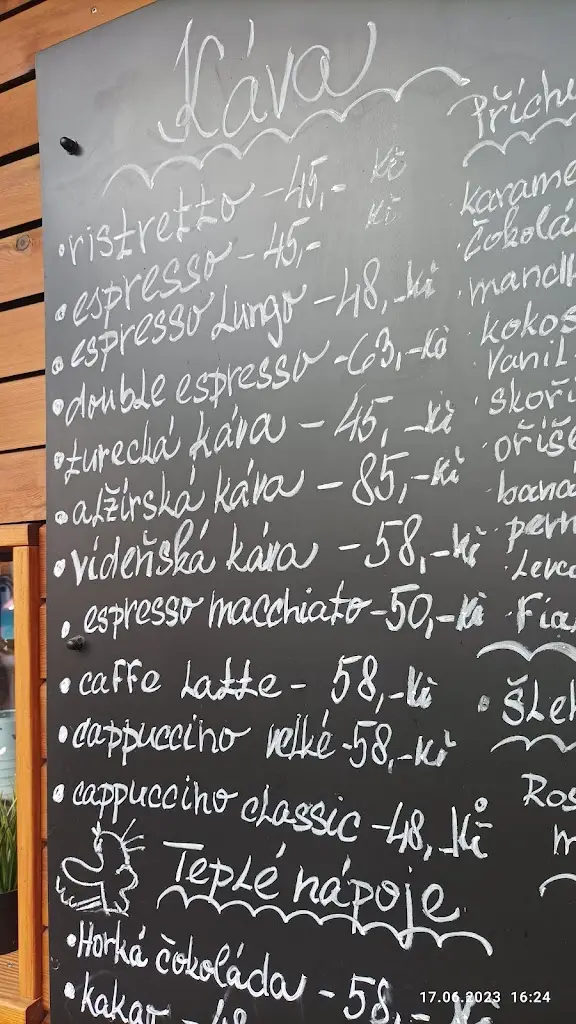 Káva
• ristretto - 45,- Kč
• espresso - 45,- Kč
• espresso Lungo - 48,- Kč
• double espresso - 63,- Kč
• turecká káva - 45,- Kč
• alžírská káva - 85,- Kč
• vídeňská káva - 58,- Kč
• espresso macchiato - 50,- Kč
• caffe Latte - 58,- Kč
• cappuccino velké - 58,- Kč
• cappuccino classic - 48,- Kč
Teplé nápoje
• Horká čokoláda - 58,- Kč
• kakao - 48
Příchu
karame
čokolá
• mandl
kokos
Vanil
• skoři
• oříš
• bana
pern
• Fia
• Šleh
Ros
m
17.06.2023 16:24